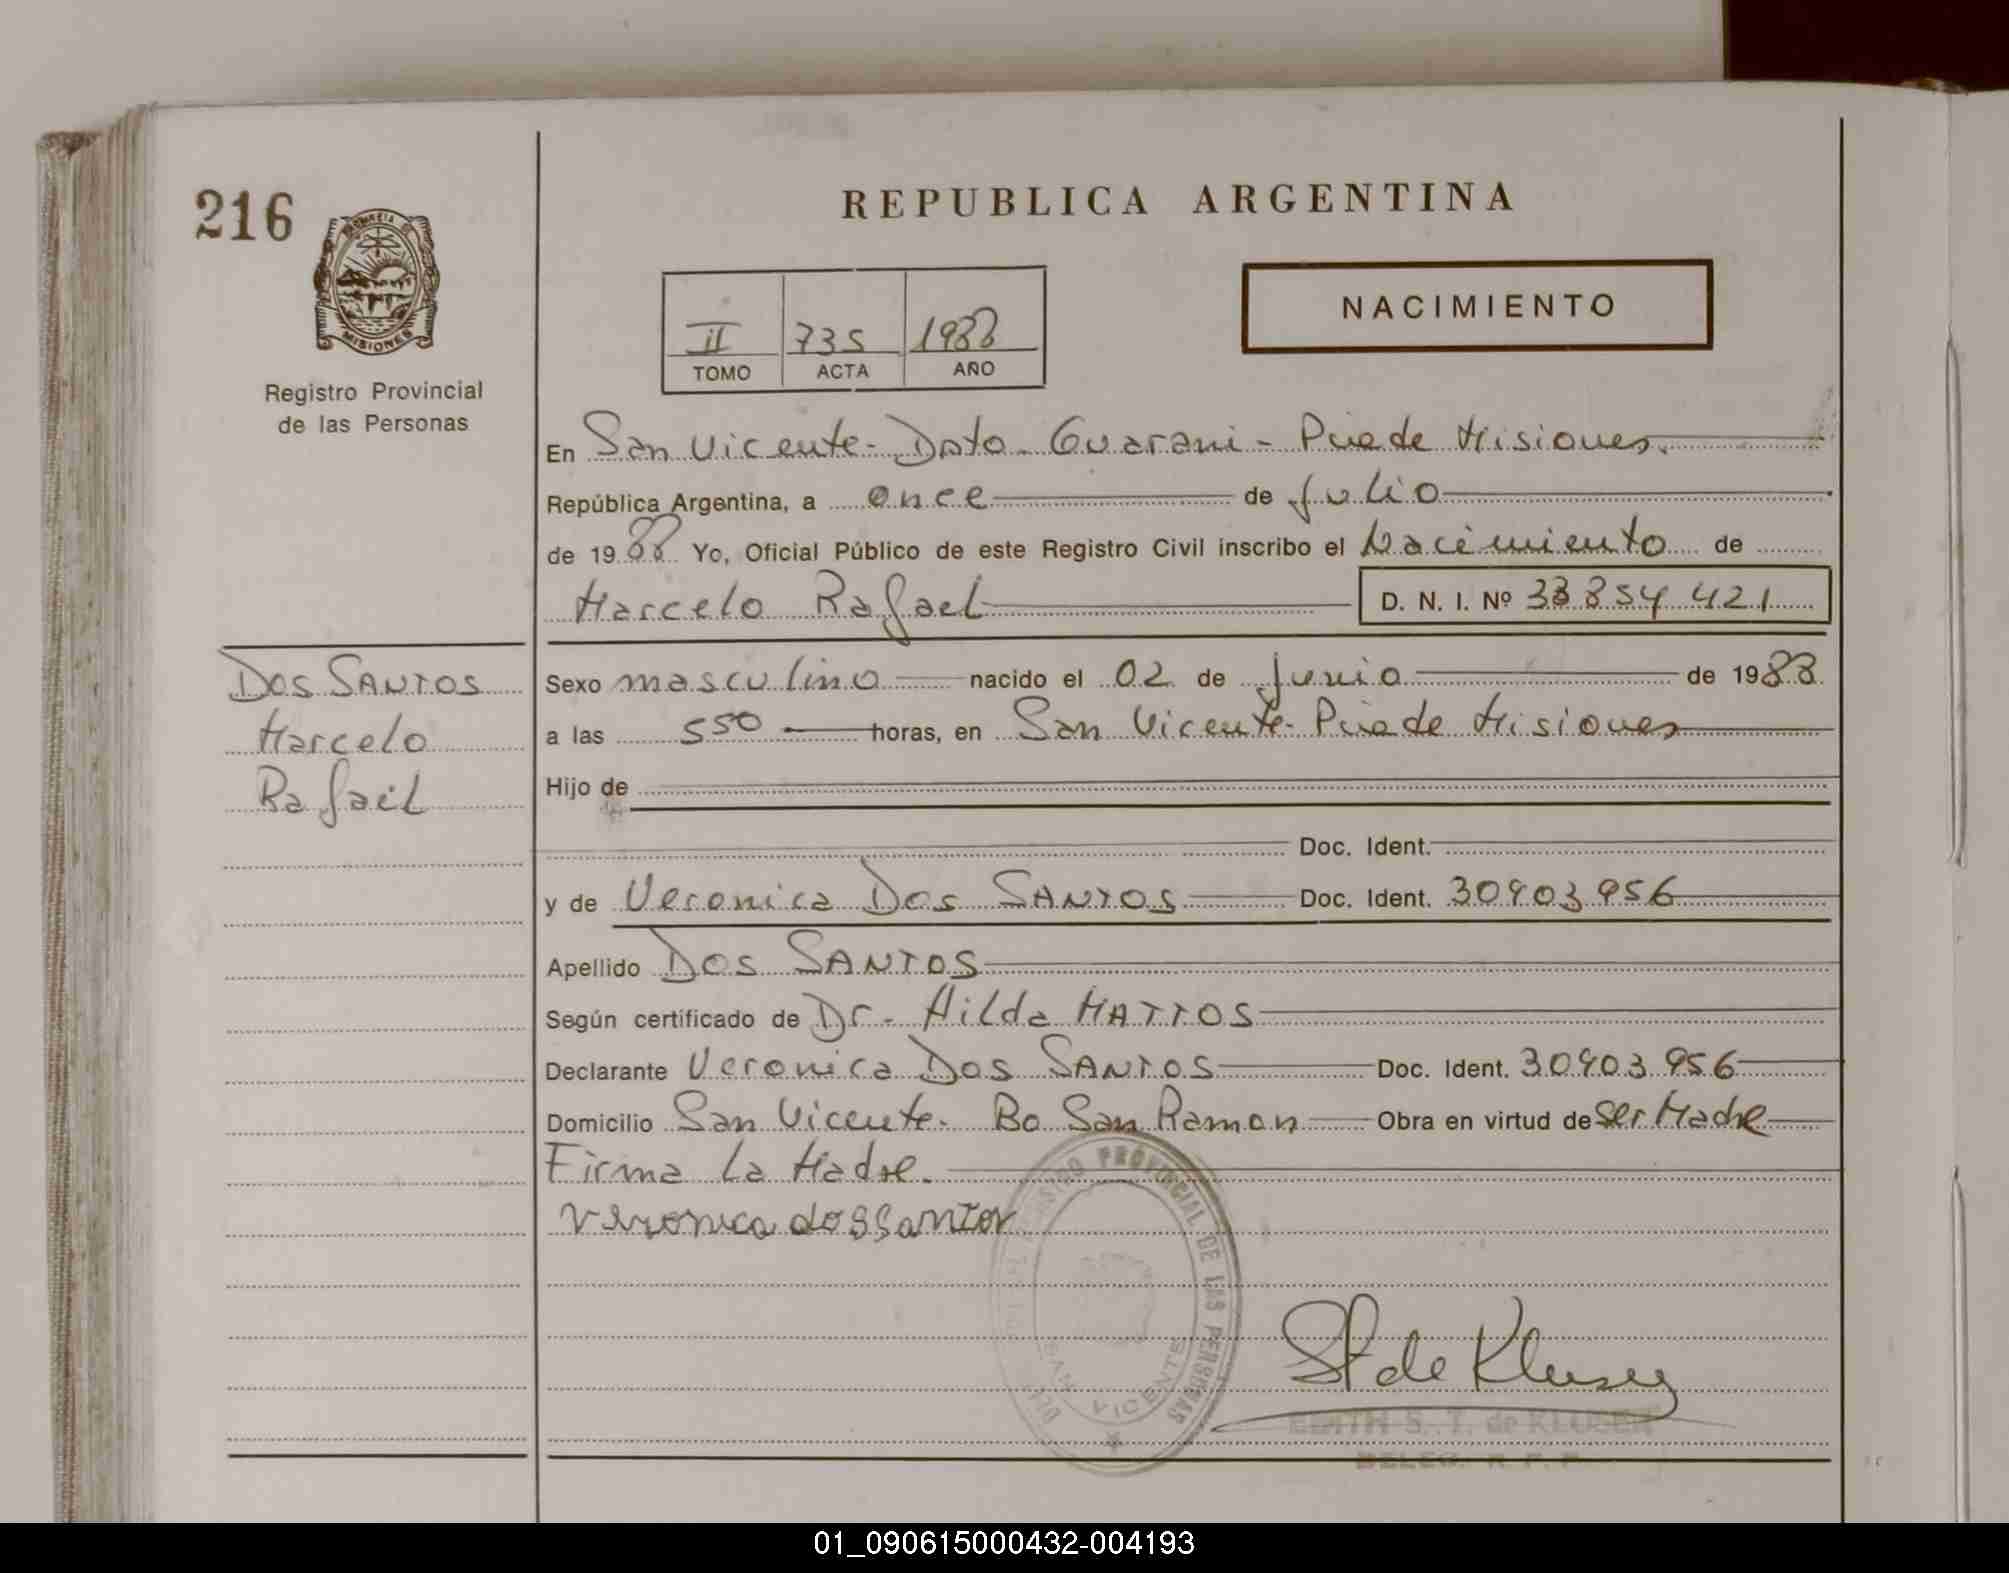 216
REPUBLICA ARGENTINA
NACIMIENTO
II 735 1988
TOMO ACTA AÑO
MISIONES
Registro Provincial
de las Personas
En San Vicente - Dpto. Guarani - Pcia de Misiones.
República Argentina, a once de Julio
de 1988 Yo, Oficial Público de este Registro Civil inscribo el Nacimiento de
Marcelo Rafael D. N. I. Nº 33 854 421
Dos SANTOS
Marcelo
Rafael
Sexo masculino nacido el 02 de Junio de 1988
a las 550 horas, en San Vicente - Pcia de Misiones
Hijo de
Doc. Ident.
y de Veronica Dos SANTOS Doc. Ident. 30903956
Apellido Dos SANTOS
Según certificado de Dr. Hilda MATTOS
Declarante Veronica Dos SANTOS Doc. Ident. 30903956
Domicilio San Vicente. Bo San Ramon Obra en virtud de ser Madre
Firma La Madre.
Veronica dos Santos
REGISTRO PROVINCIAL DE LAS PERSONAS
SAN VICENTE
EDITH S. T. de KLUSEN
DELEG. R. P. P.
01_090615000432-004193